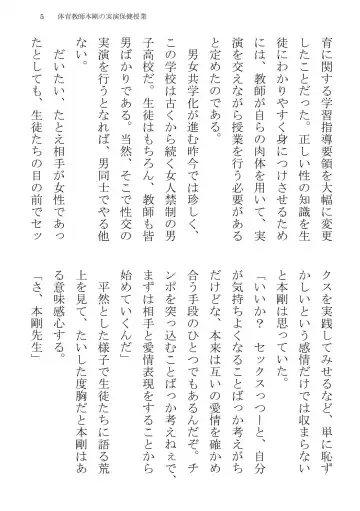 5　体育教師本剛の実演保健授業
育に関する学習指導要領を大幅に変更
したことだった。正しい性の知識を生
徒にわかりやすく身につけさせるため
には、教師が自らの肉体を用いて、実
演を交えながら授業を行う必要がある
と定めたのである。
　男女共学化が進む昨今では珍しく、
この学校は古くから続く女人禁制の男
子高校だ。生徒はもちろん、教師も皆
男ばかりである。当然、そこで性交の
実演を行うとなれば、男同士でやる他
ない。
　だいたい、たとえ相手が女性であっ
たとしても、生徒たちの目の前でセッ
クスを実践してみせるなど、単に恥ず
かしいという感情だけでは収まらない
と本剛は思っていた。
「いいか？　セックスっつーと、自分
が気持ちよくなることばっか考えがち
だけどな、本来は互いの愛情を確かめ
合う手段のひとつでもあるんだぞ。チ
ンポを突っ込むことばっか考えねぇで、
まずは相手と愛情表現をすることから
始めていくんだ」
　平然とした様子で生徒たちに語る荒
上を見て、たいした度胸だと本剛はあ
る意味感心する。
「さ、本剛先生」